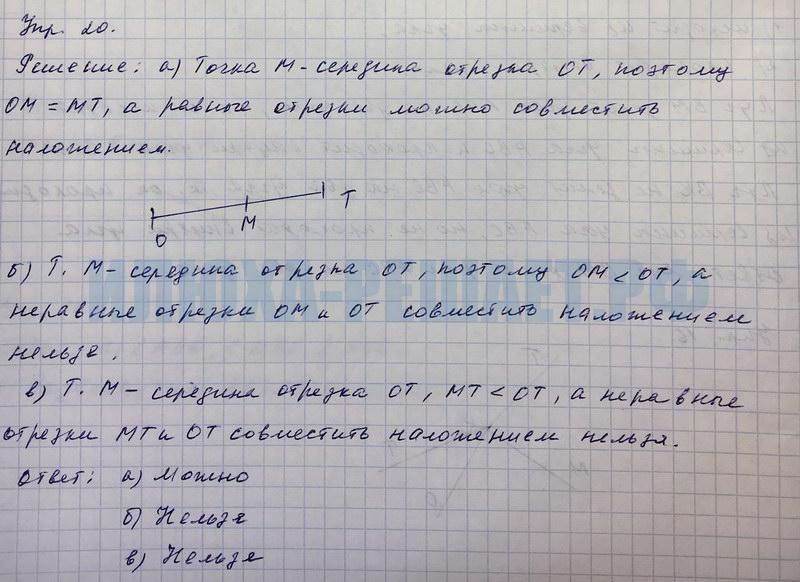 Упр. 20.
Решение: а) Точка М - середина отрезка ОТ, поэтому
ОМ = МТ, а равные отрезки можно совместить
наложением.
Т
М
О
б) Т. М - середина отрезка ОТ, поэтому ОМ < ОТ, а
неравные отрезки ОМ и ОТ совместить наложением
нельзя.
в) Т. М - середина отрезка ОТ, МТ < ОТ, а неравные
отрезки МТ и ОТ совместить наложением нельзя.
Ответ: а) Можно
б) Нельзя
в) Нельзя